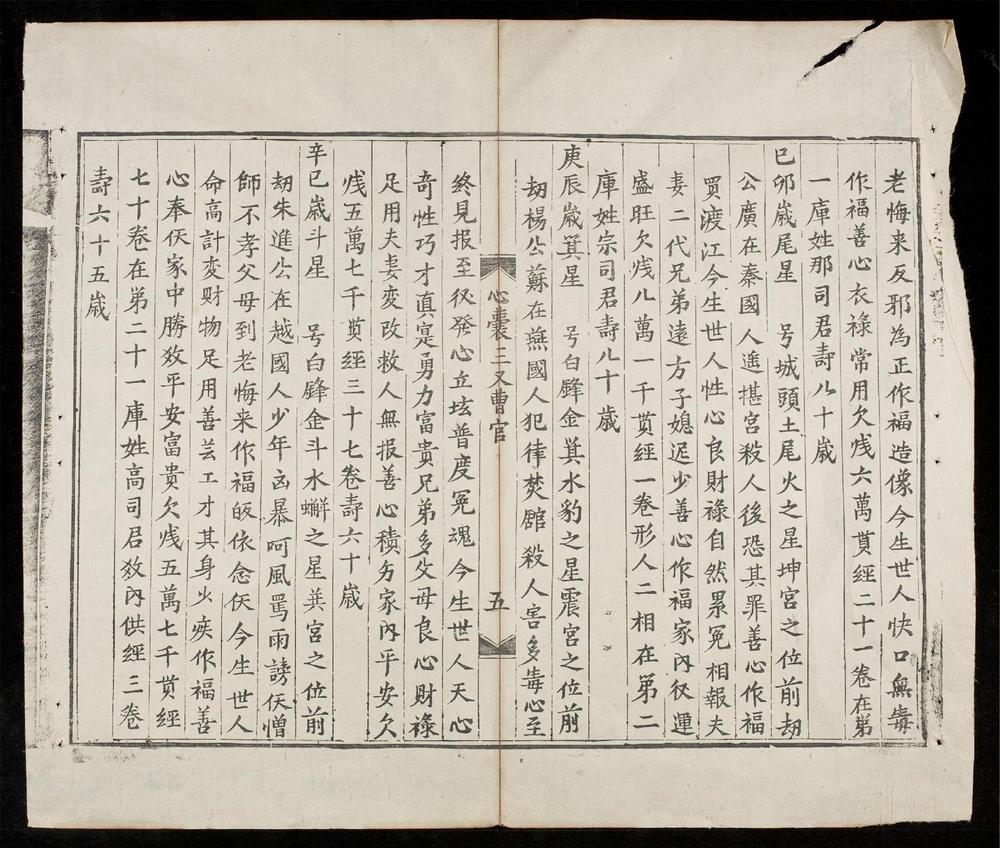 老悔来反邪為正作福造像今生世人快口無毒
作福善心衣祿常用欠㦮六萬貫經二十一卷在第
一庫姓那司君壽八十歲
巳卯歲尾星　号城頭土尾火之星坤宮之位前劫
公廣在秦國人遙揕宮殺人後恐其罪善心作福
買渡江今生世人性心良財祿自然累冤相報夫
妻二代兄弟遠方子媳迟少善心作福家内役運
盛旺欠㦮八萬一千貫經一卷形人二相在第二
庫姓宗司君壽八十歲
庚辰歲箕星　号白鋒金箕水豹之星震宮之位前
劫楊公蘇在蕪國人犯律焚舘殺人害多毒心至
心囊三又曹官　五
終見报至役發心立坛普度冤魂今生世人天心
奇性巧才真定勇力富貴兄弟多父母良心財祿
足用夫妻变改救人無报善心積方家内平安欠
㦮五萬七千貫經三十七卷壽六十歲
辛巳歲斗星　号白鋒金斗水蠏之星巽宮之位前
劫朱進公在越國人少年凶暴呵風罵雨謗仸僧
師不孝父母到老悔来作福皈依念仸今生世人
命高計变财物足用善芸工才其身少疾作福善
心奉仸家中勝效平安富貴欠㦮五萬七千貫經
七十卷在第二十一庫姓高司君效内供經三卷
壽六十五歲